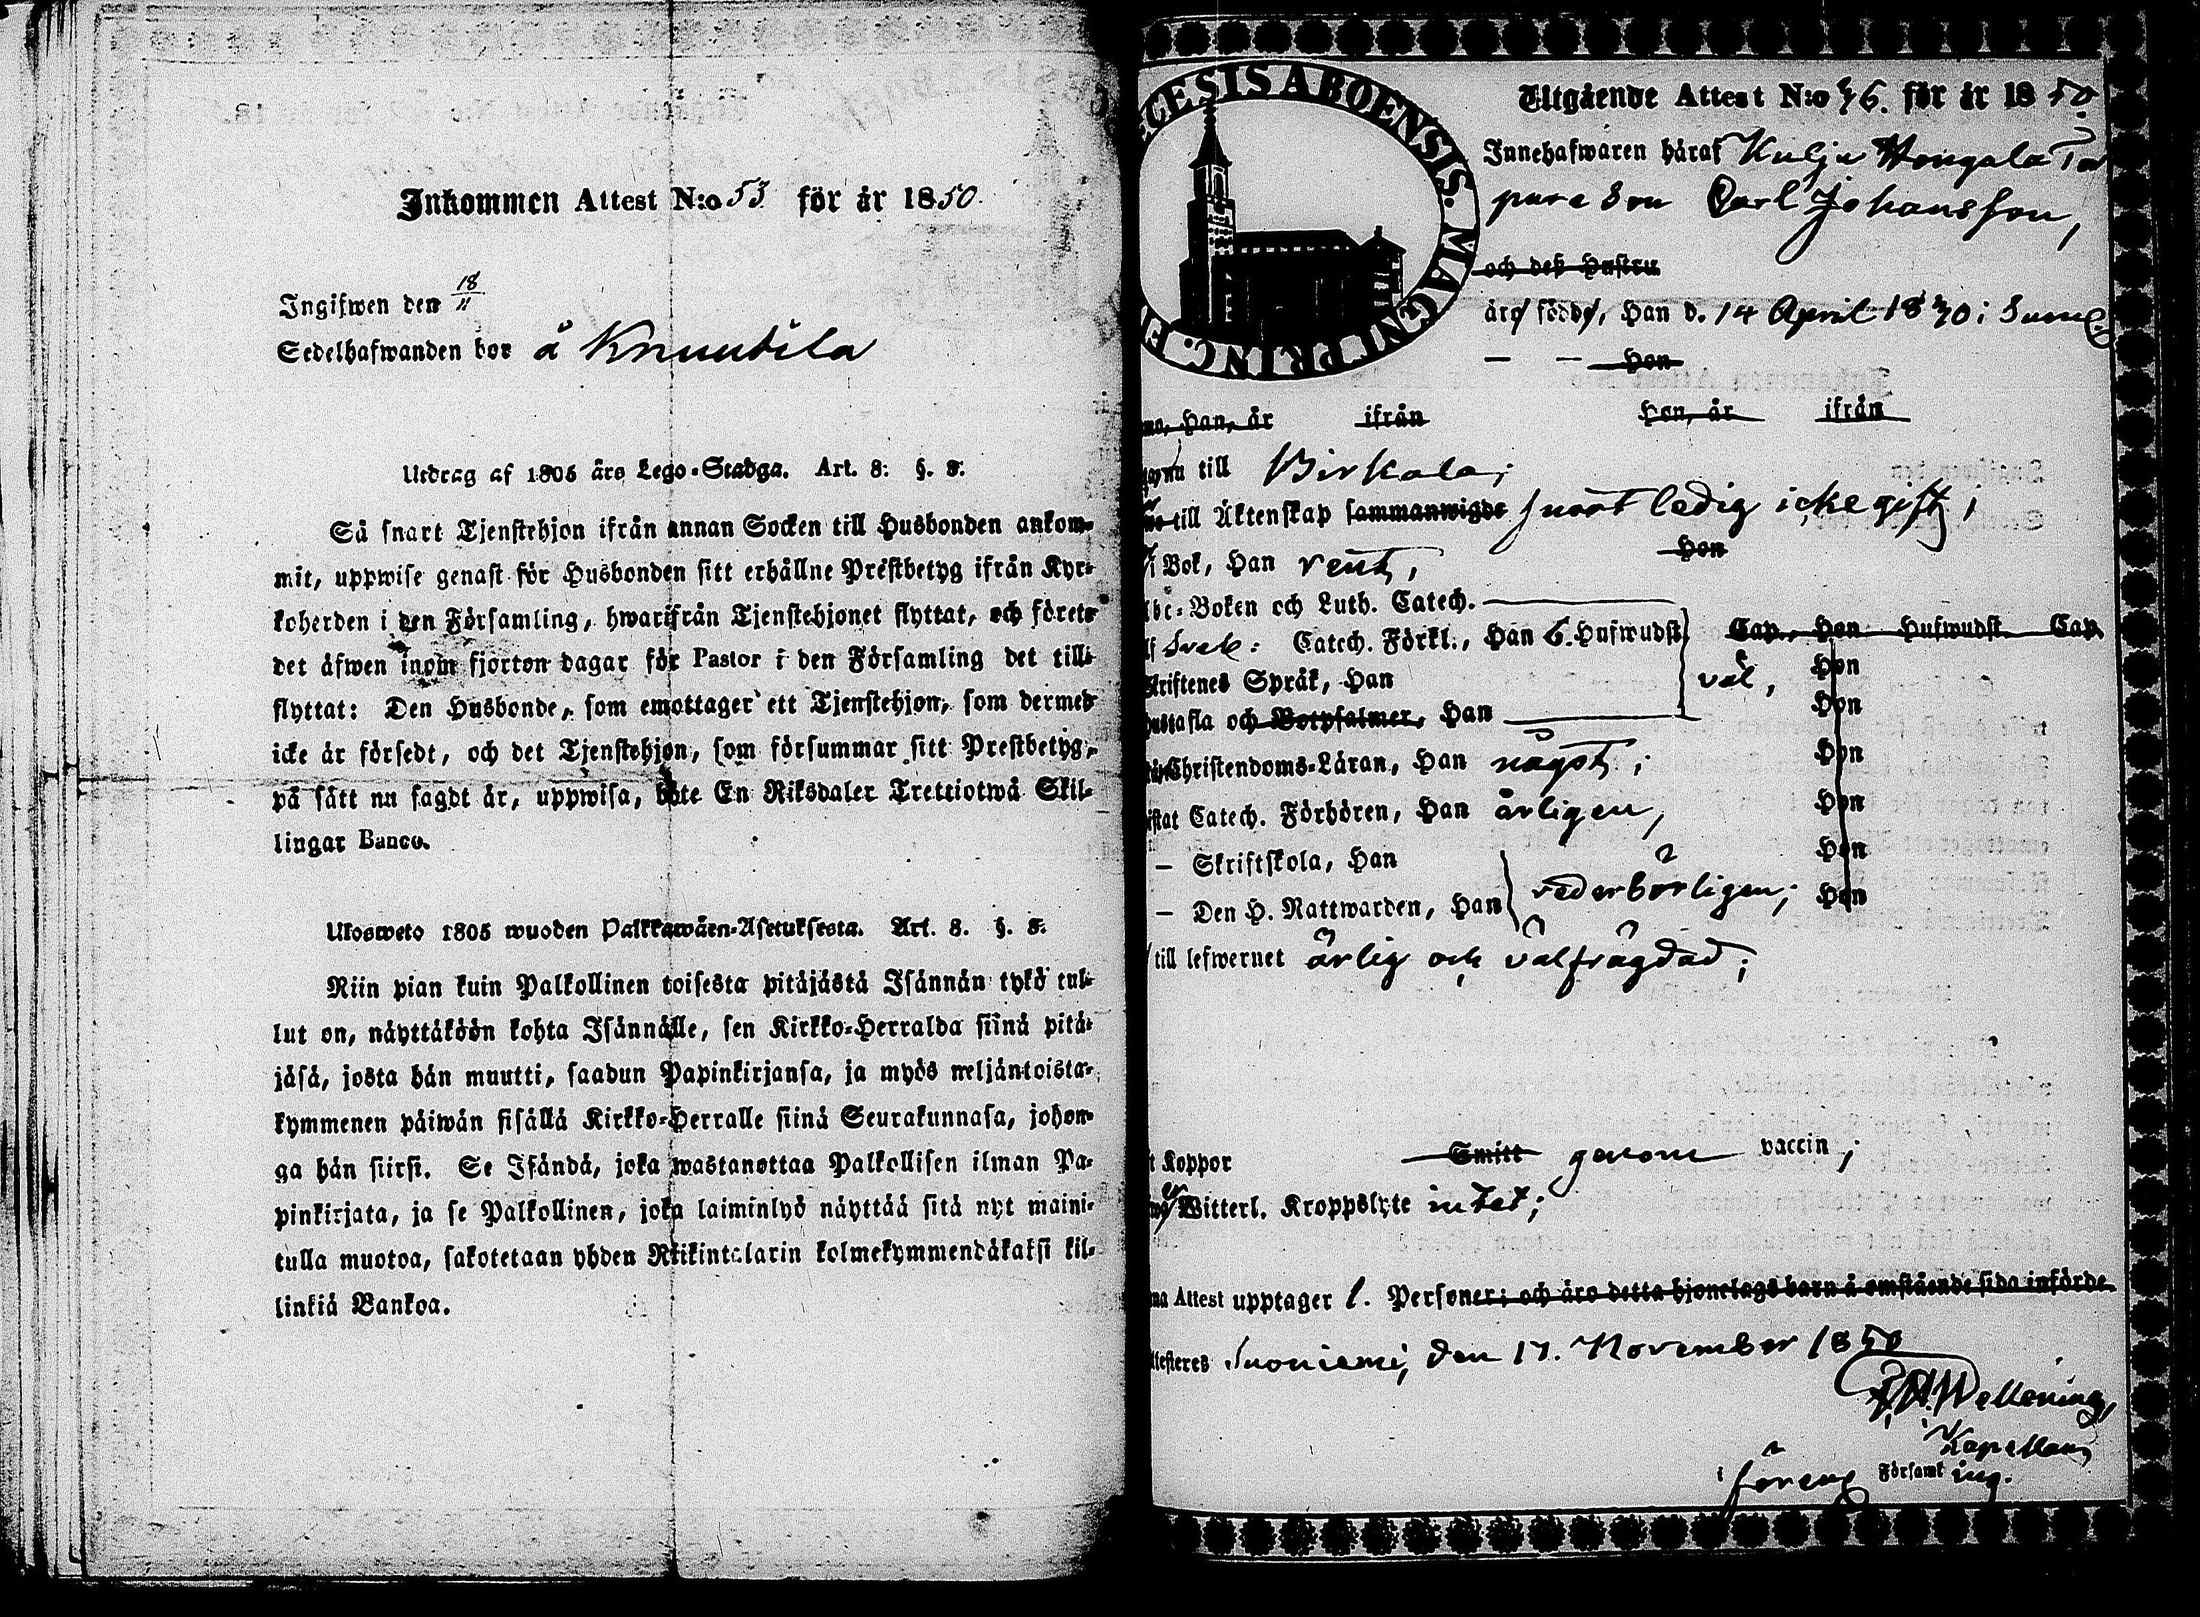 Inkommen Attest N:o 53 för år 1850.
Ingifwen den 18/11
Sedelhafwanden bor å Knuutila
Utdrag af 1805 års Lego-Stadga. Art. 8: §. 8:
Så snart Tjenstehjon ifrån annan Socken till Husbonden ankom-
mit, uppwise genast för Husbonden sitt erhållne Prestbetyg ifrån Kyr-
koherden i den Församling, hwarifrån Tjenstehjonet flyttat, och förete
det äfwen inom fjorton dagar för Pastor i den Församling det till-
flyttat: Den Husbonde, som emottager ett Tjenstehjon, som dermed
icke är försedt, och det Tjenstehjon, som försummar sitt Prestbetyg,
på sätt nu sagdt är, uppwisa, böte En Riksdaler Trettiotwå Skil-
lingar Banco.
Ulosweto 1805 wuoden Palkkawäen-Asetuksesta. Art. 8. §. 8:
Niin pian kuin Palkollinen toisesta pitäjästä Isännän tykö tul-
lut on, näyttäköön kohta Isännälle, sen Kirkko-Herralda siinä pitä-
jäsä, josta hän muutti, saadun Papinkirjansa, ja myös neljäntoista-
kymmenen päiwän sisällä Kirkko-Herralle siinä Seurakunnasa, johon-
ga hän siirsi. Se Isändä, joka wastanottaa Palkollisen ilman Pa-
pinkirjata, ja se Palkollinen, joka laiminlyö näyttää sitä nyt maini-
tulla muotoa, sakotetaan yhden Riikintalarin kolmekymmendäkaksi kil-
linkiä Bankoa.
CESIS ABOENSIS. MAGNI PRINC.
Utgående Attest N:o 76. för år 1850.
Innehafwaren häraf Kulju Hongala Tor
pare Son Carl Johansson,
och deß Hustru
äro födde, Han d. 14 April 1830 i
Hon
Han, är ifrån Hon, är ifrån
till Birkala;
till Äktenskap sammanwigde samt ledig icke gift;
i Bok, Han rent, Hon
Boken och Luth. Catech.
Sveb: Catech. Förkl., Han 6. Hufwudst. Cap. Hon Hufwudst. Cap.
Skriftenes Språk, Han väl, Hon
Hustafla och Botpsalmer, Han Hon
Christendoms-Läran, Han något; Hon
Catech. Förhören, Han årligen, Hon
— Skriftskola, Han Hon
— Den H. Nattwarden, Han vederbörligen; Hon
till lefwernet ärlig och välfrägdad;
Koppor Smitt genom vaccin;
Witterl. Kroppslyte intet;
Attest upptager 1. Personer; och äro detta hjonelags barn å omstående sida införde.
Suoniemi, den 17. November 1850
Kapellan
i föreng Församling.